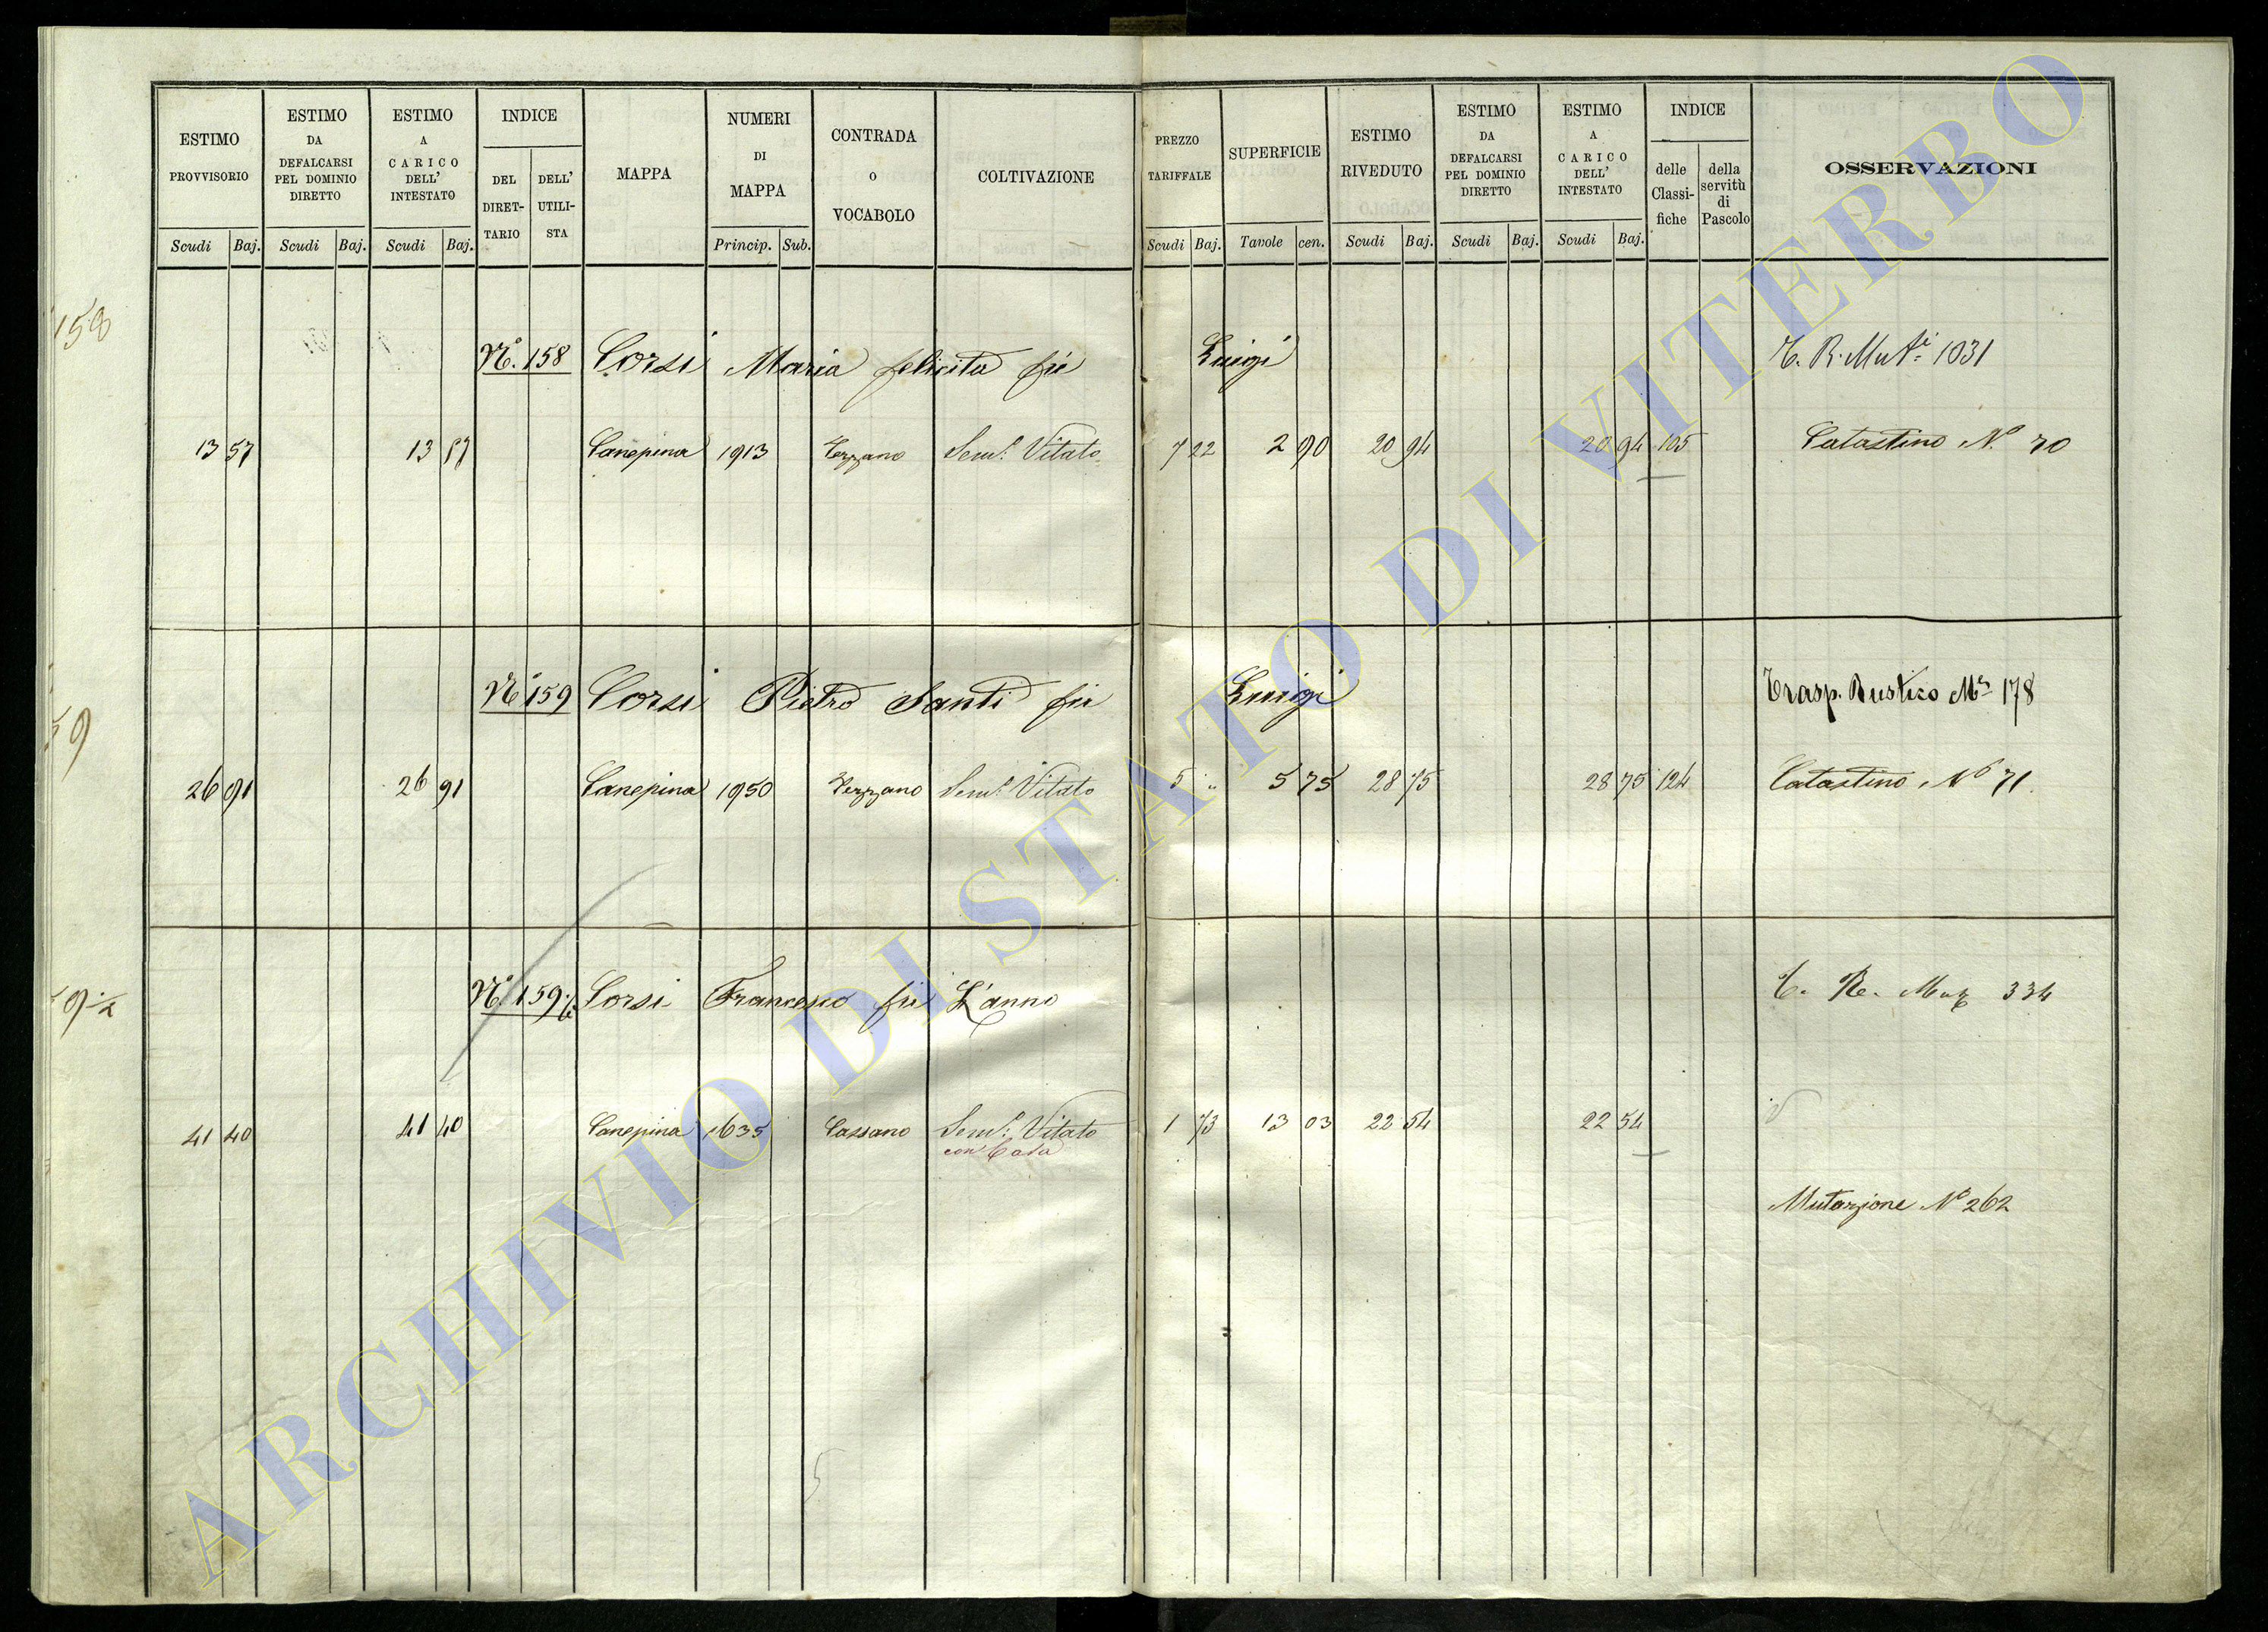 ESTIMO PROVVISORIO
Scudi Baj.
ESTIMO DA DEFALCARSI PEL DOMINIO DIRETTO
Scudi Baj.
ESTIMO A CARICO DELL' INTESTATO
Scudi Baj.
INDICE
DEL DIRET-TARIO
DELL' UTILI-STA
MAPPA
NUMERI DI MAPPA
Princip. Sub.
CONTRADA O VOCABOLO
COLTIVAZIONE
PREZZO TARIFFALE
Scudi Baj.
SUPERFICIE
Tavole cen.
ESTIMO RIVEDUTO
Scudi Baj.
ESTIMO DA DEFALCARSI PEL DOMINIO DIRETTO
Scudi Baj.
ESTIMO A CARICO DELL' INTESTATO
Scudi Baj.
INDICE
delle Classi-fiche
della servitù di Pascolo
OSSERVAZIONI
158
N.º 158 Corsi Maria felicita fu Luigi
1031
13 57 13 57 Canepina 1913 Vezzano Sem.º Vitato 7 22 2 90 20 94 20 94 105 Catastino Nº 70
59
Nº 159 Corsi Pietro Santi fu Luigi Trasp. Rustico 178
26 91 26 91 Canepina 1950 Vezzano Sem.º Vitato 5 " 5 75 28 75 28 75 124 Catastino Nº 71
9 ½
Nº 159½ Corsi Francesco fu 334
41 40 41 40 Canepina 1635 Cassano Sem.º Vitato 1 73 13 03 22 54 22 54
con Casa
Mutazione Nº 262
ARCHIVIO DI STATO DI VITERBO